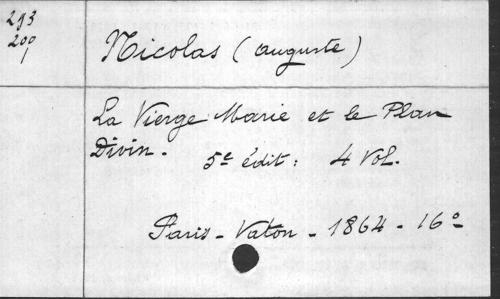 293
209
Nicolas (auguste)
La Vierge Marie et le Plan
Divin.
5e édit: 4 Vol.
Paris - Vaton - 1864 - 16°